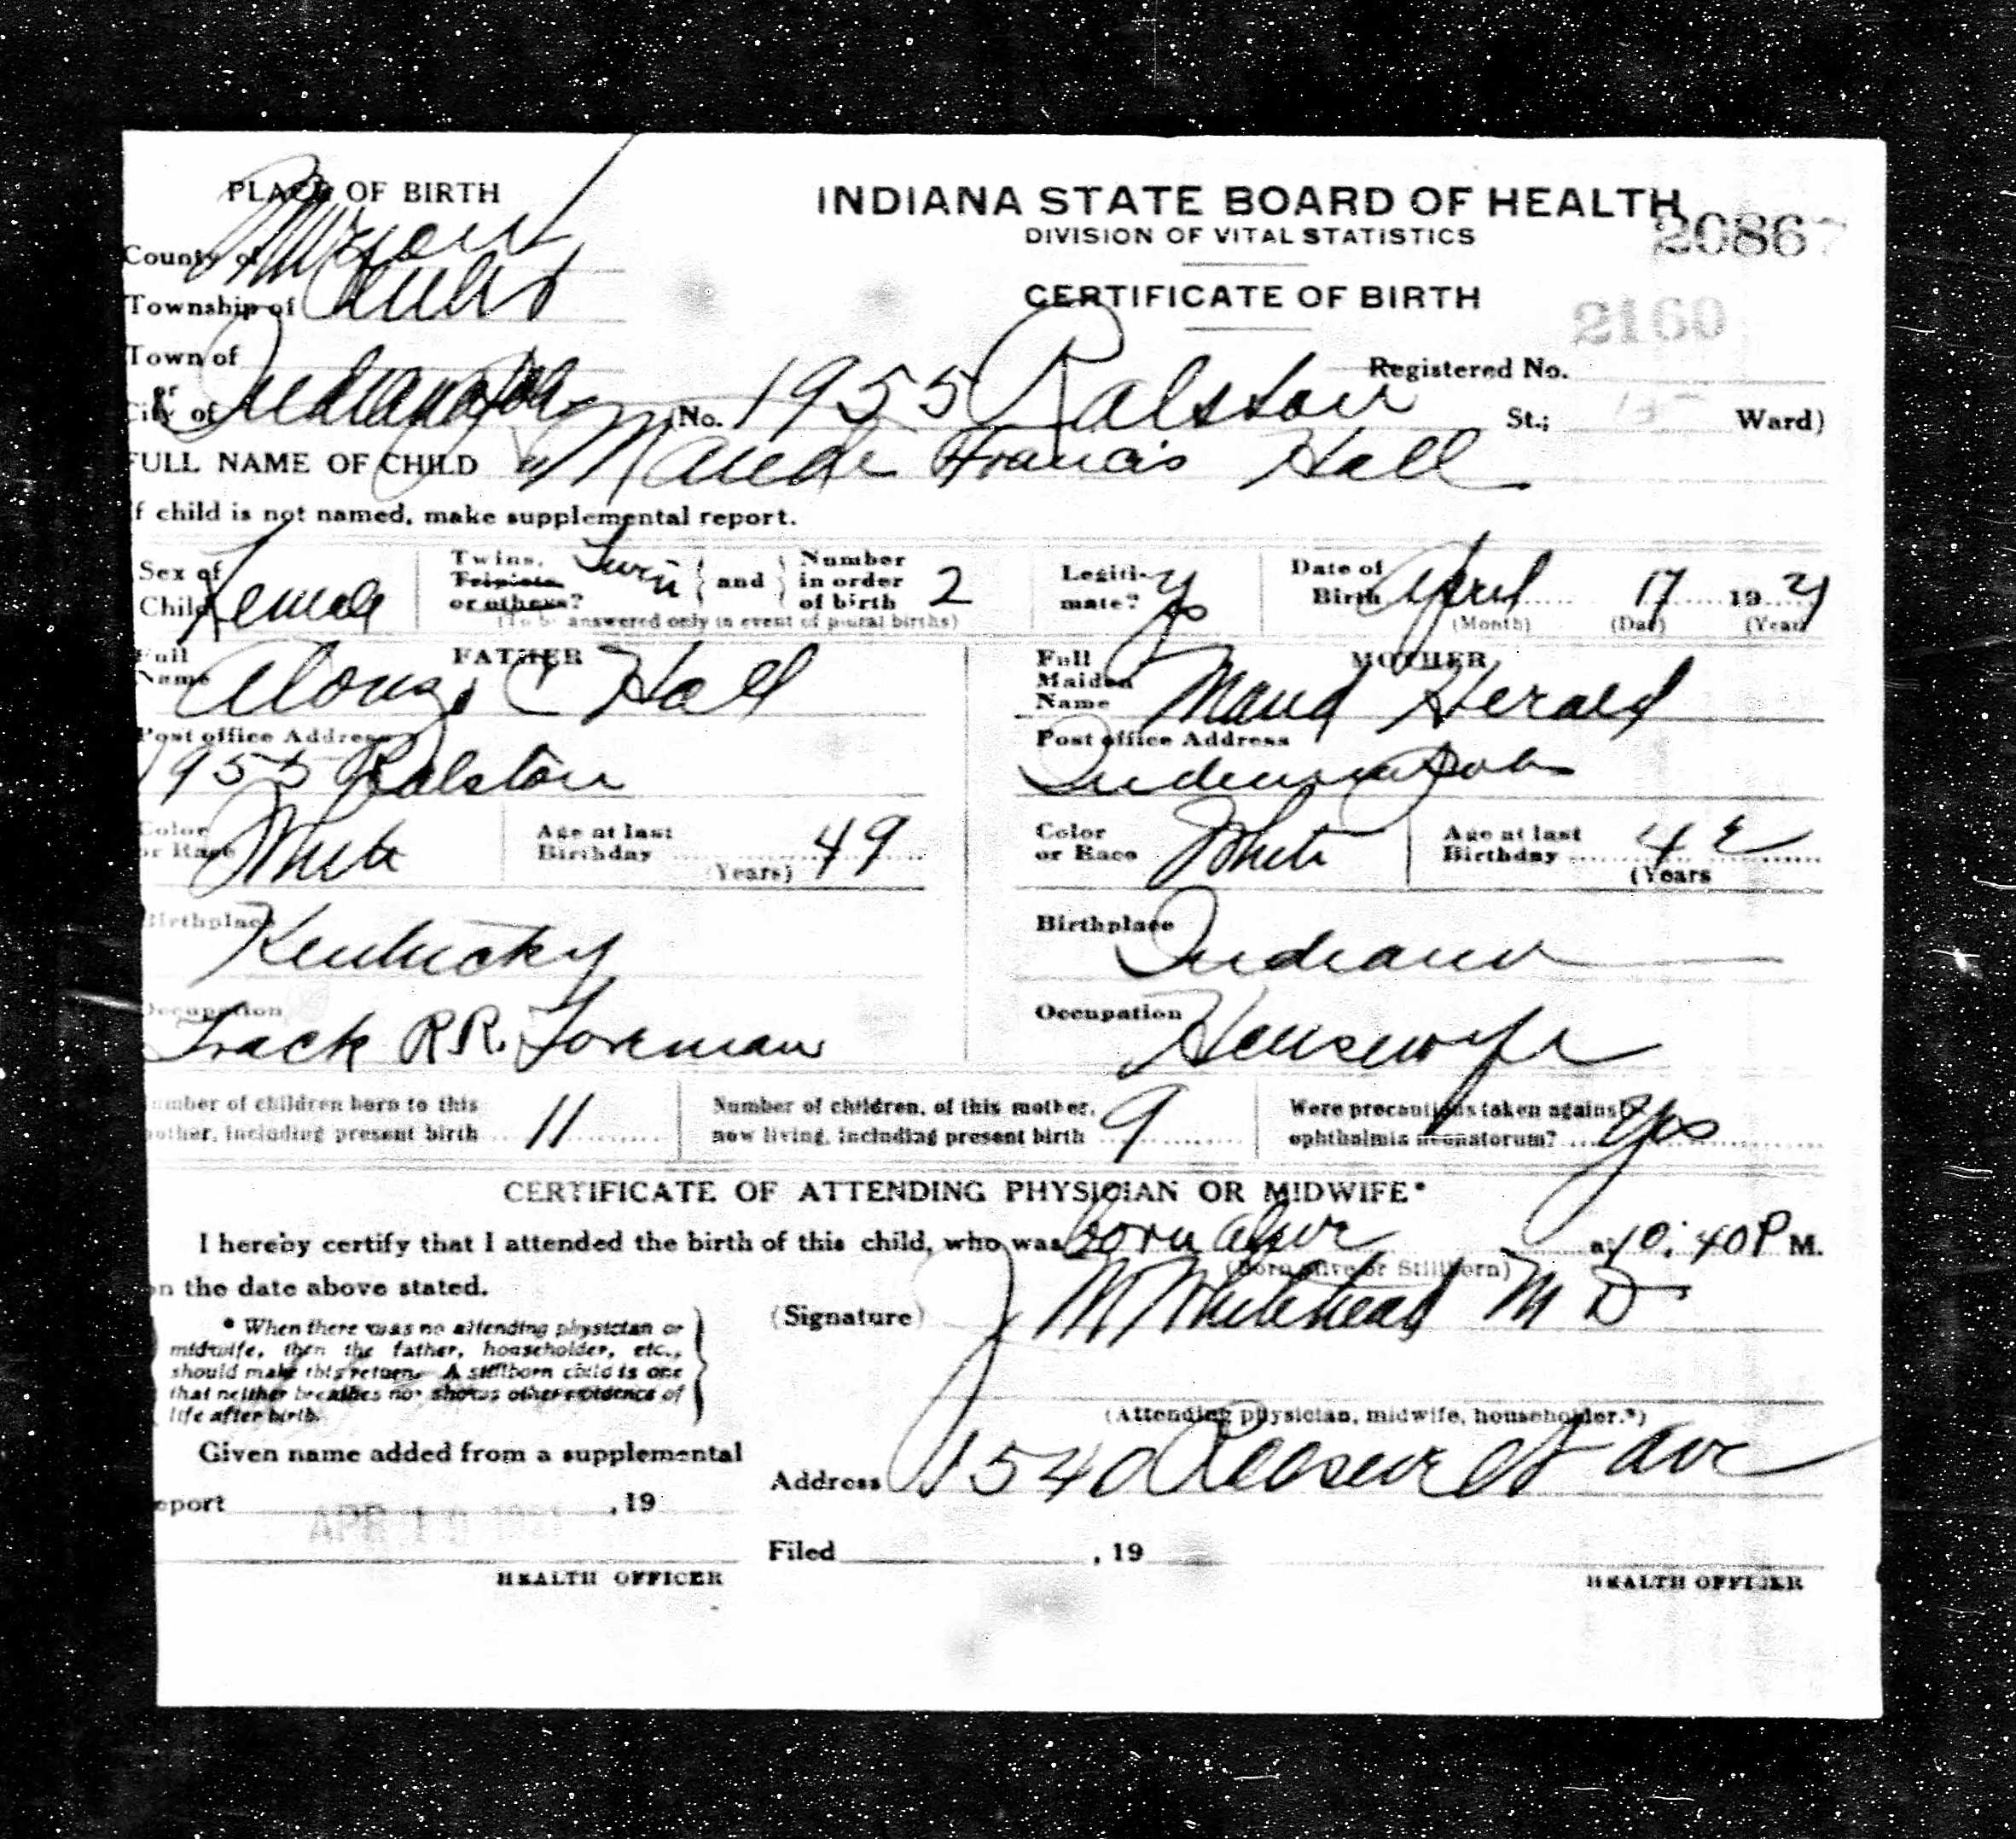 PLACE OF BIRTH
INDIANA STATE BOARD OF HEALTH
20867
DIVISION OF VITAL STATISTICS
County of Marion
CERTIFICATE OF BIRTH
Township of
2160
Town of
Registered No.
or
City of Indianapolis No. 1955 Ralston St.; Ward)
FULL NAME OF CHILD Maude Francis Hall
If child is not named, make supplemental report.
Sex of Child Female
Twins, Triplets or others? Twin and Number in order of birth 2
(To be answered only in event of plural births)
Legitimate? Yes
Date of Birth April 17 1921
(Month) (Day) (Year)
FATHER
Full Name Alonzo C Hall
MOTHER
Full Maiden Name Maud Herald
Post office Address
1955 Ralston
Post office Address
Indianapolis
Color or Race White
Age at last Birthday 49
(Years)
Color or Race White
Age at last Birthday 42
(Years
Birthplace
Kentucky
Birthplace
Indiana
Occupation
Track R.R. Foreman
Occupation
Housewife
Number of children born to this mother, including present birth 11
Number of children, of this mother, now living, including present birth 9
Were precautions taken against ophthalmia neonatorum? Yes
CERTIFICATE OF ATTENDING PHYSICIAN OR MIDWIFE*
I hereby certify that I attended the birth of this child, who was born alive at 10:40 P M.
(Born alive or Stillborn)
on the date above stated.
(Signature) J M Whitehead M D
* When there was no attending physician or
midwife, then the father, householder, etc.,
should make this return. A stillborn child is one
that neither breathes nor shows other evidence of
life after birth.
(Attending physician, midwife, householder.*)
Given name added from a supplemental
Address 1540 Roosevelt Ave
report , 19
APR
Filed , 19
HEALTH OFFICER
HEALTH OFFICER